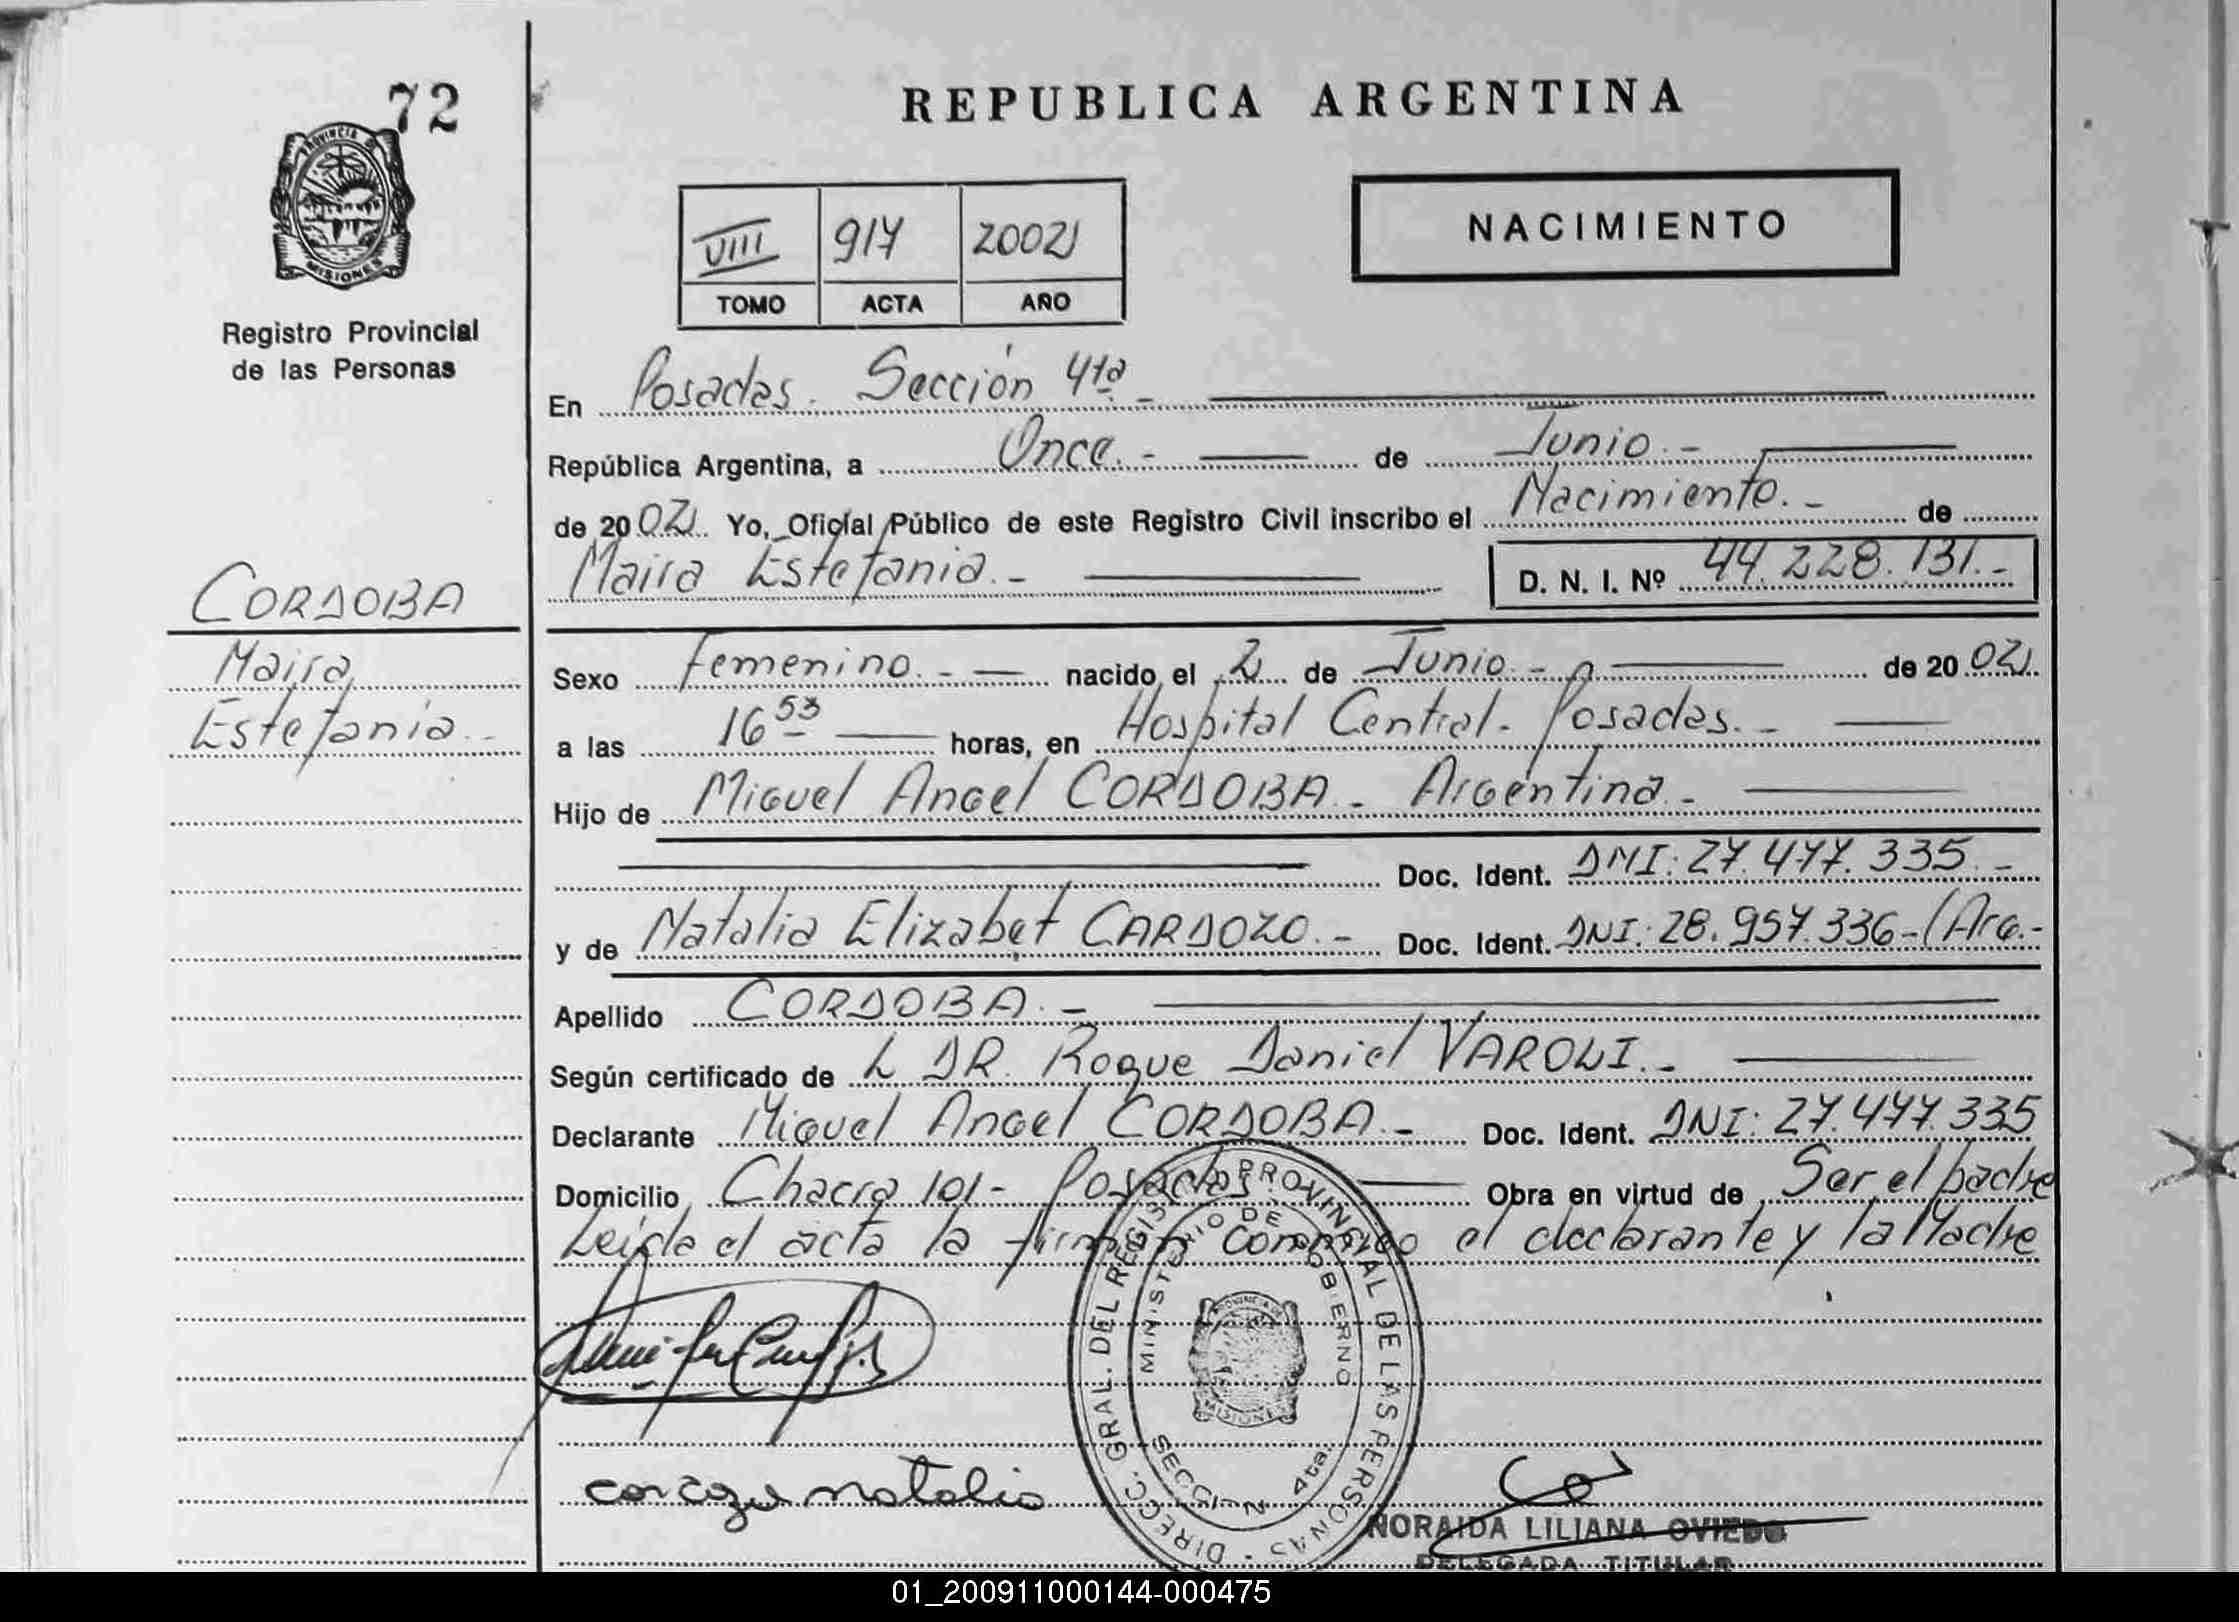 72
REPUBLICA ARGENTINA
PROVINCIA DE
MISIONES
Registro Provincial
de las Personas
VIII 917 2002
TOMO ACTA AÑO
NACIMIENTO
En Posadas. Sección 4ta -
República Argentina, a Once.- de Junio.-
de 2002. Yo, Oficial Público de este Registro Civil inscribo el Nacimiento.- de
Maira Estefania.- D. N. I. Nº 44.228.131.-
CORDOBA
Maira
Estefania.-
Sexo Femenino.- nacido el 2 de Junio.- de 2002.
a las 16 53 horas, en Hospital Central. Posadas.-
Hijo de Miguel Angel CORDOBA. Argentina.-
Doc. Ident. DNI: 27.477.335.-
y de Natalia Elizabet CARDOZO.- Doc. Ident. DNI: 28.957.336-(Arg.-
Apellido CORDOBA.-
Según certificado de L DR. Roque Daniel VAROLI.-
Declarante Miguel Angel CORDOBA.- Doc. Ident. DNI: 27.477.335
Domicilio Chacra 101- Posadas. Obra en virtud de Ser el padre
Leida el acta la firman conmigo el declarante y la Madre
DIRECC. GRAL. DEL REGISTRO PROVINCIAL DE LAS PERSONAS -
MINISTERIO DE GOBIERNO
PROVINCIA DE
MISIONES
SECCION 4ta.
natalia
NORAIDA LILIANA OVIEDO
DELEGADA TITULAR
01_200911000144-000475